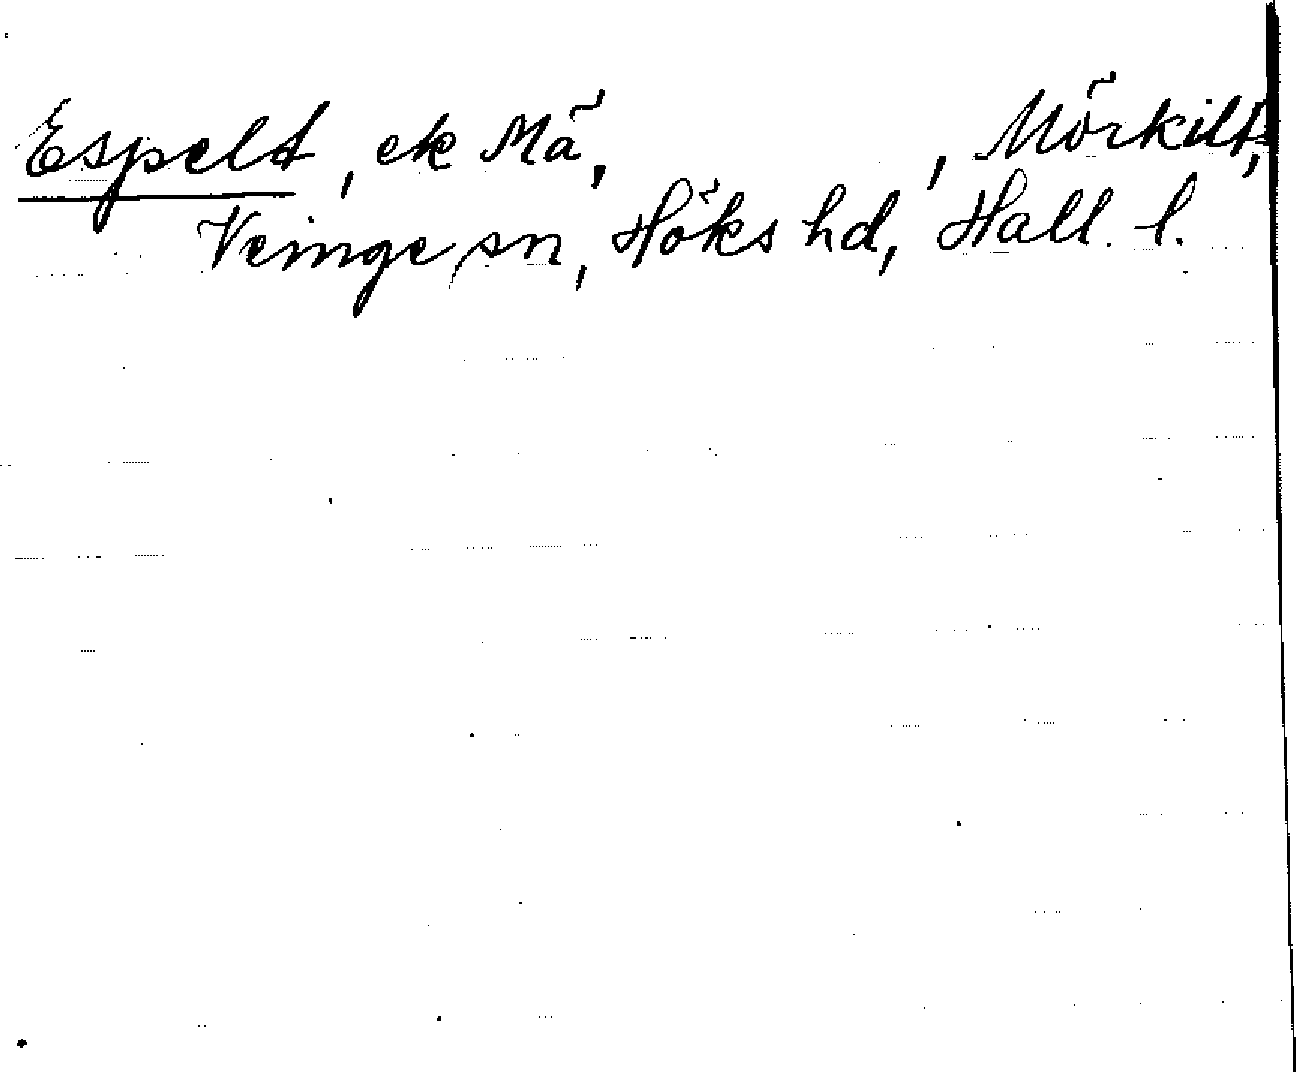 Espelt, ek Mä, , Mörkilt,
Veinge sn, Höks hd, Hall. l.